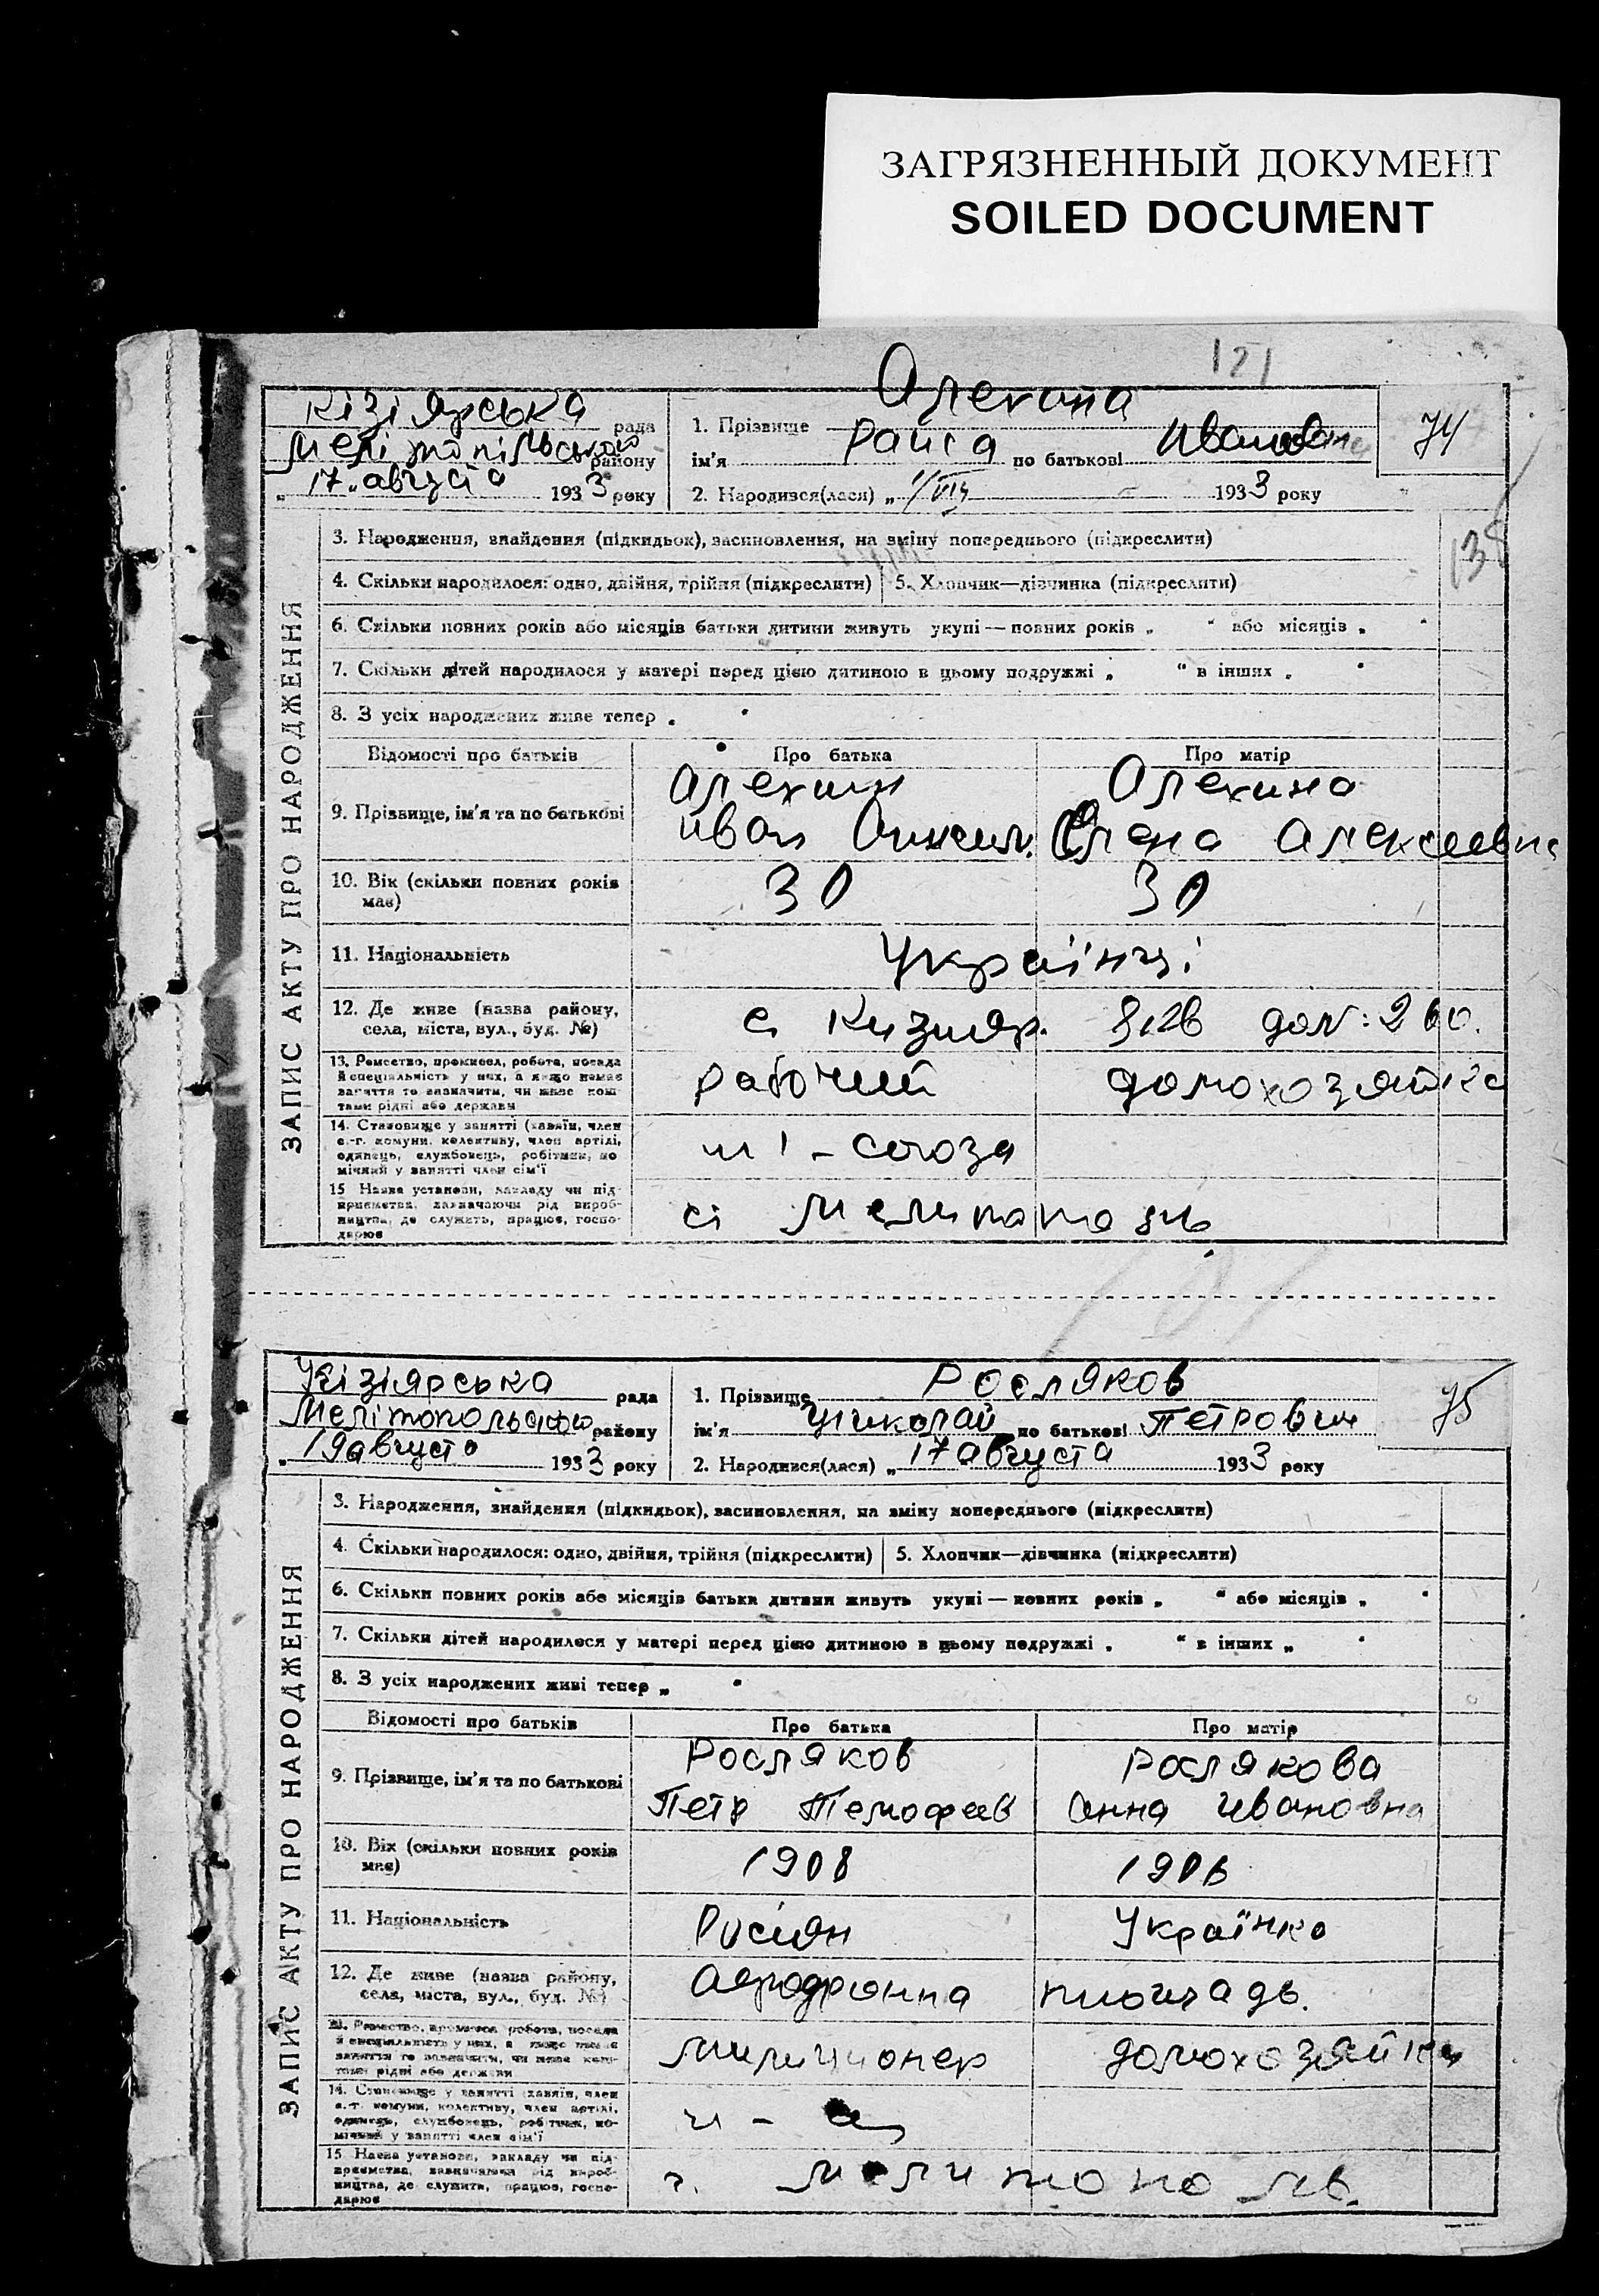 ЗАГРЯЗНЕННЫЙ ДОКУМЕНТ
SOILED DOCUMENT
121
ЗАПИС АКТУ ПРО НАРОДЖЕННЯ
Кізіярська рада
Мелітопільського району
"17" августа 1933 року
74
1. Прізвище Алехина
ім'я Раиса по батькові Ивановна
2. Народився(лася) „1/VIII 1933 року
138
3. Народження, знайдення (підкидьок), засиновлення, на зміну попереднього (підкреслити)
4. Скільки народилося: одно, двійня, трійня (підкреслити)
5. Хлопчик—дівчинка (підкреслити)
6. Скільки повних років або місяців батьки дитини живуть укупі — повних років „ “ або місяців „ “
7. Скільки дітей народилося у матері перед цією дитиною в цьому подружжі „ “ в інших „ “
8. З усіх народжених живе тепер „ “
Відомості про батьків Про батька Про матір
9. Прізвище, ім'я та по батькові
Алехин
Иван
Алехина
Олена Алексеевна
10. Вік (скільки повних років має) 30 30
11. Національність Українці
12. Де живе (назва району, села, міста, вул., буд. №)
с. Кизияр дом: 260.
13. Ремество, промисел, робота, посада й спеціальність у них, а якщо немає заняття то визначити, чи живе коштами рідні або держави
рабочий домохозяйка
14. Становище у занятті (хазяїн, член с.-г. комуни, колективу, член артілі, одинець, службовець, робітник, помічний у занятті член сім'ї
союза
15 Назва установи, закладу чи підприємства, зазначаючи рід виробництва, де служить, працює, господарює
Мелитополь
ЗАПИС АКТУ ПРО НАРОДЖЕННЯ
Кізіярська рада
Мелітопольского району
„19 августа 1933 року
75
1. Прізвище Росляков
ім'я Николай по батькові Петрович
2. Народився(лася) „17 августа 1933 року
3. Народження, знайдення (підкидьок), засиновлення, на зміну попереднього (підкреслити)
4. Скільки народилося: одно, двійня, трійня (підкреслити)
5. Хлопчик—дівчинка (підкреслити)
6. Скільки повних років або місяців батьки дитини живуть укупі — повних років „ “ або місяців „ “
7. Скільки дітей народилося у матері перед цією дитиною в цьому подружжі „ “ в інших „ “
8. З усіх народжених живі тепер „ “
Відомості про батьків Про батька Про матір
9. Прізвище, ім'я та по батькові
Росляков
Петр Темофеев
Рослякова
Анна Ивановна
10. Вік (скільки повних років має) 1908 1906
11. Національність Росиян Українка
12. Де живе (назва району, села, міста, вул., буд. №)
площадь.
13. Ремество, промисел, робота, посада й спеціальність у них, а якщо немає заняття то визначити, чи живе коштами рідні або держави
милиционер домохозяйка
14. Становище у занятті (хазяїн, член с.-г. комуни, колективу, член артілі, одинець, службовець, робітник, помічний у занятті член сім'ї
15 Назва установи, закладу чи підприємства, зазначаючи рід виробництва, де служить, працює, господарює
г. Мелитополь.